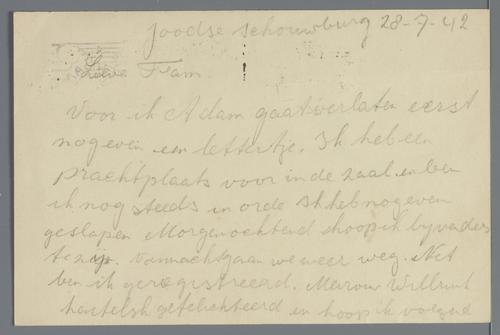 Joodse Schouwburg 28-7-42
Lieve Fam.
Voor ik A'dam ga verlaten eerst
nog even een lettertje. Ik heb een
prachtplaats voor in de zaal en ben
ik nog steeds in orde Ik heb nog even
geslapen Morgenochtend hoop ik bij vaders
te zijn. Vannacht gaan we weer weg. Net
ben ik geregistreerd. Mevrouw
hartelijk gefeliciteerd en hoop ik volgend